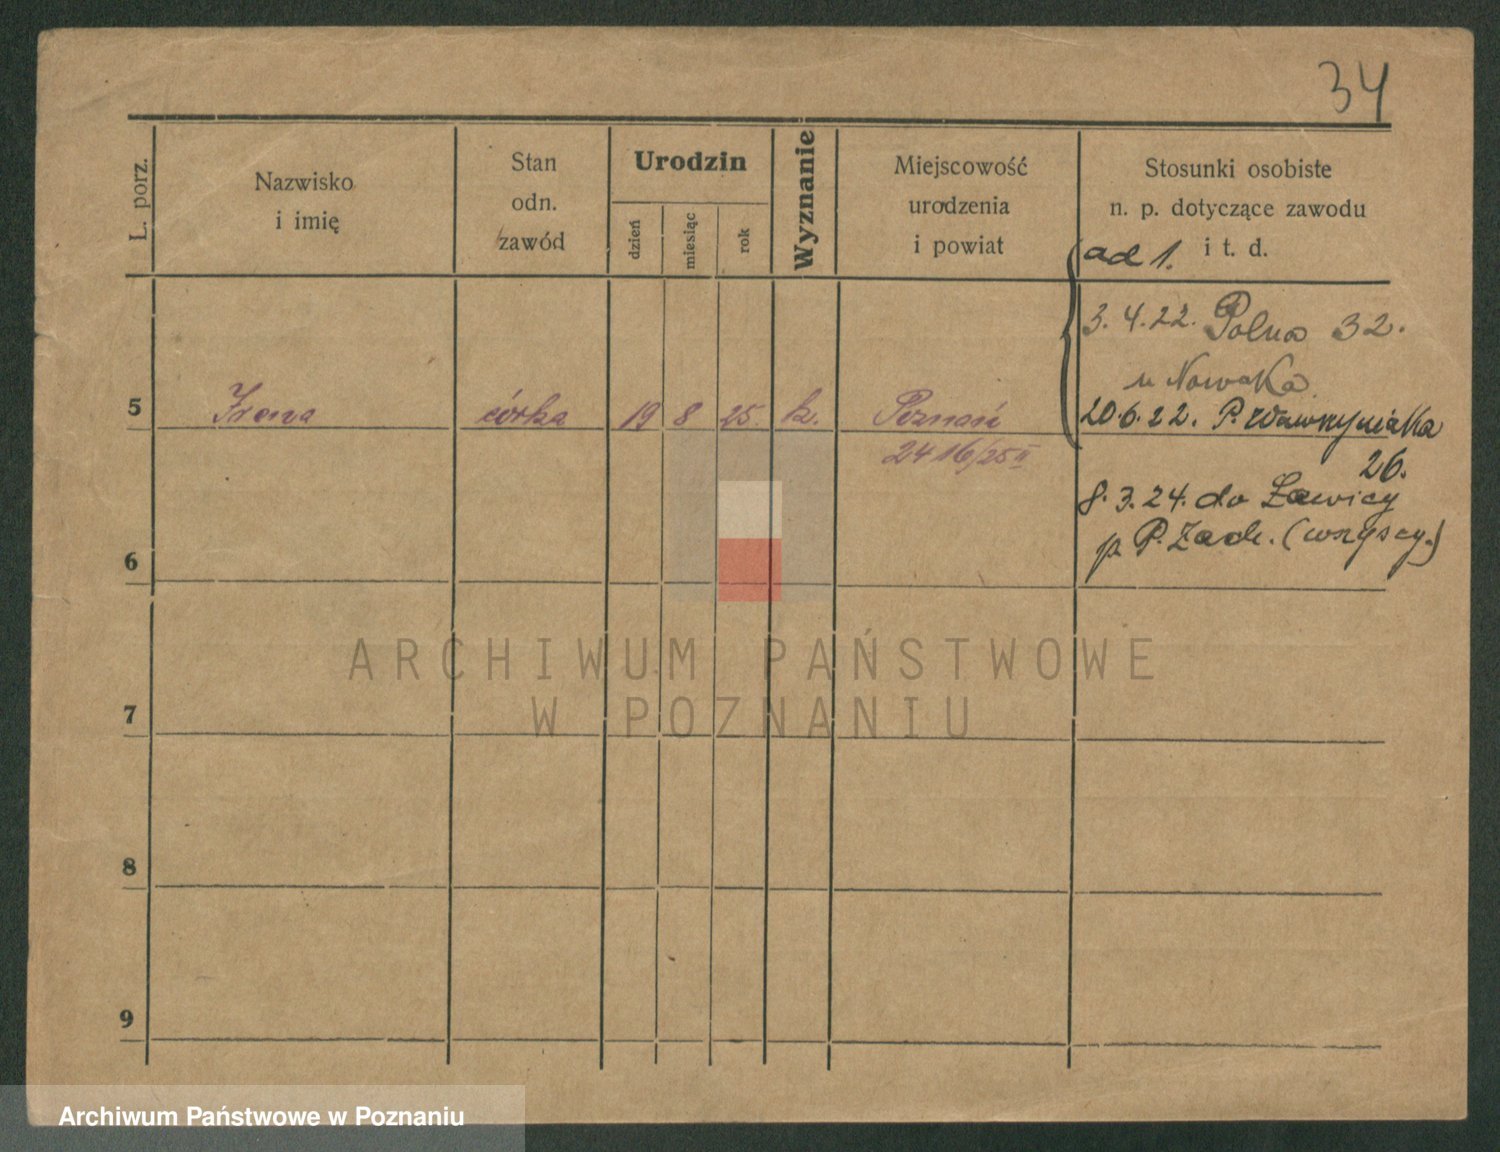 34
L. porz.
Nazwisko
i imię
Stan
odn.
zawód
Urodzin
dzień
miesiąc
rok
Wyznanie
Miejscowość
urodzenia
i powiat
Stosunki osobiste
n. p. dotyczące zawodu
i t. d.
ad 1.
3. 4. 22. Polna 32.
u Nowaka
5 Irena córka 19 8 25. k. Poznań
20.6.22. P. Wawrzyniaka
26.
2416/25 II
8. 3. 24. do Ławicy
p. P. Zach. (wszyscy.)
6
7
8
9
ARCHIWUM PAŃSTWOWE
W POZNANIU
Archiwum Państwowe w Poznaniu